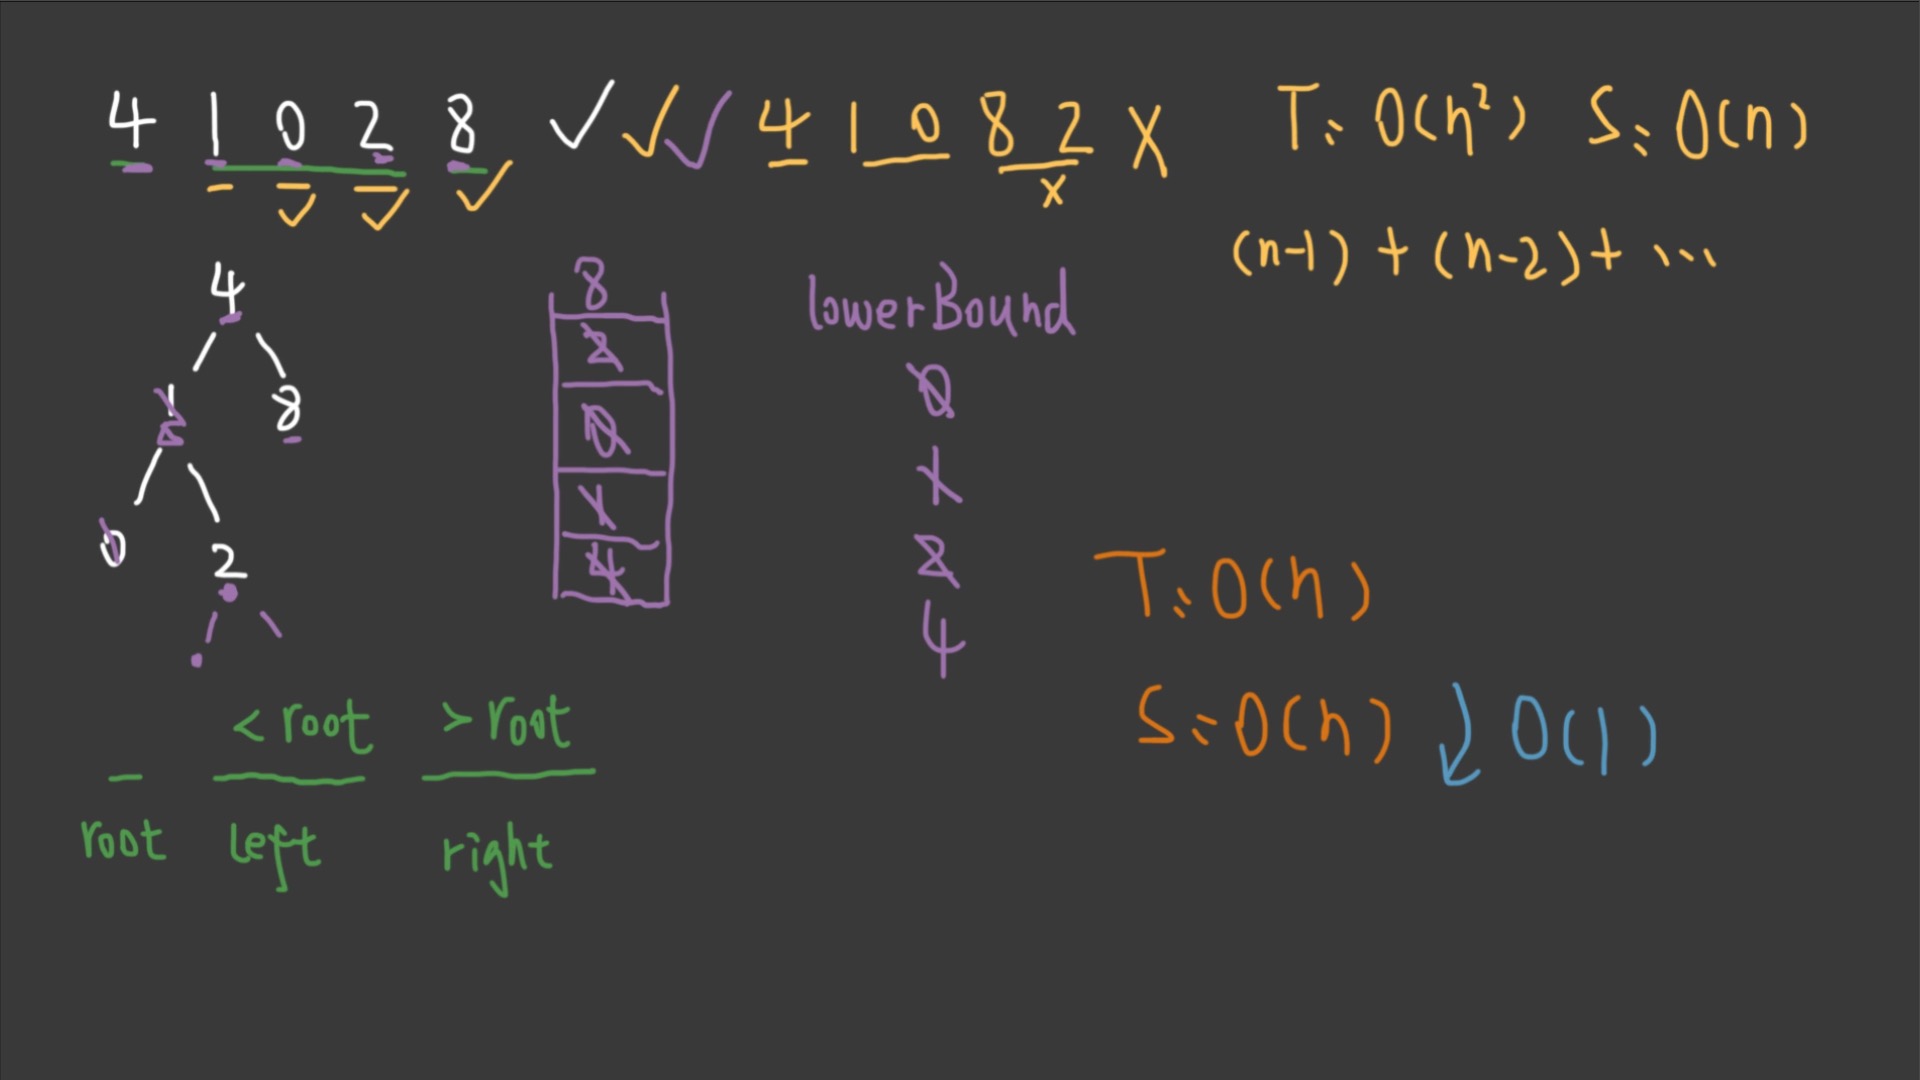 4 1 0 2 8 ✓ ✓ ✓ 4 1 0 8 2 X T: O(n²) S: O(n)
✓ ✓ ✓ x
(n-1) + (n-2) + ...
4
1 8
2
0 2
8
2
0
1
4
lowerBound
0
1
2
4
T: O(n)
S: O(n) ↓ O(1)
< root > root
root left right